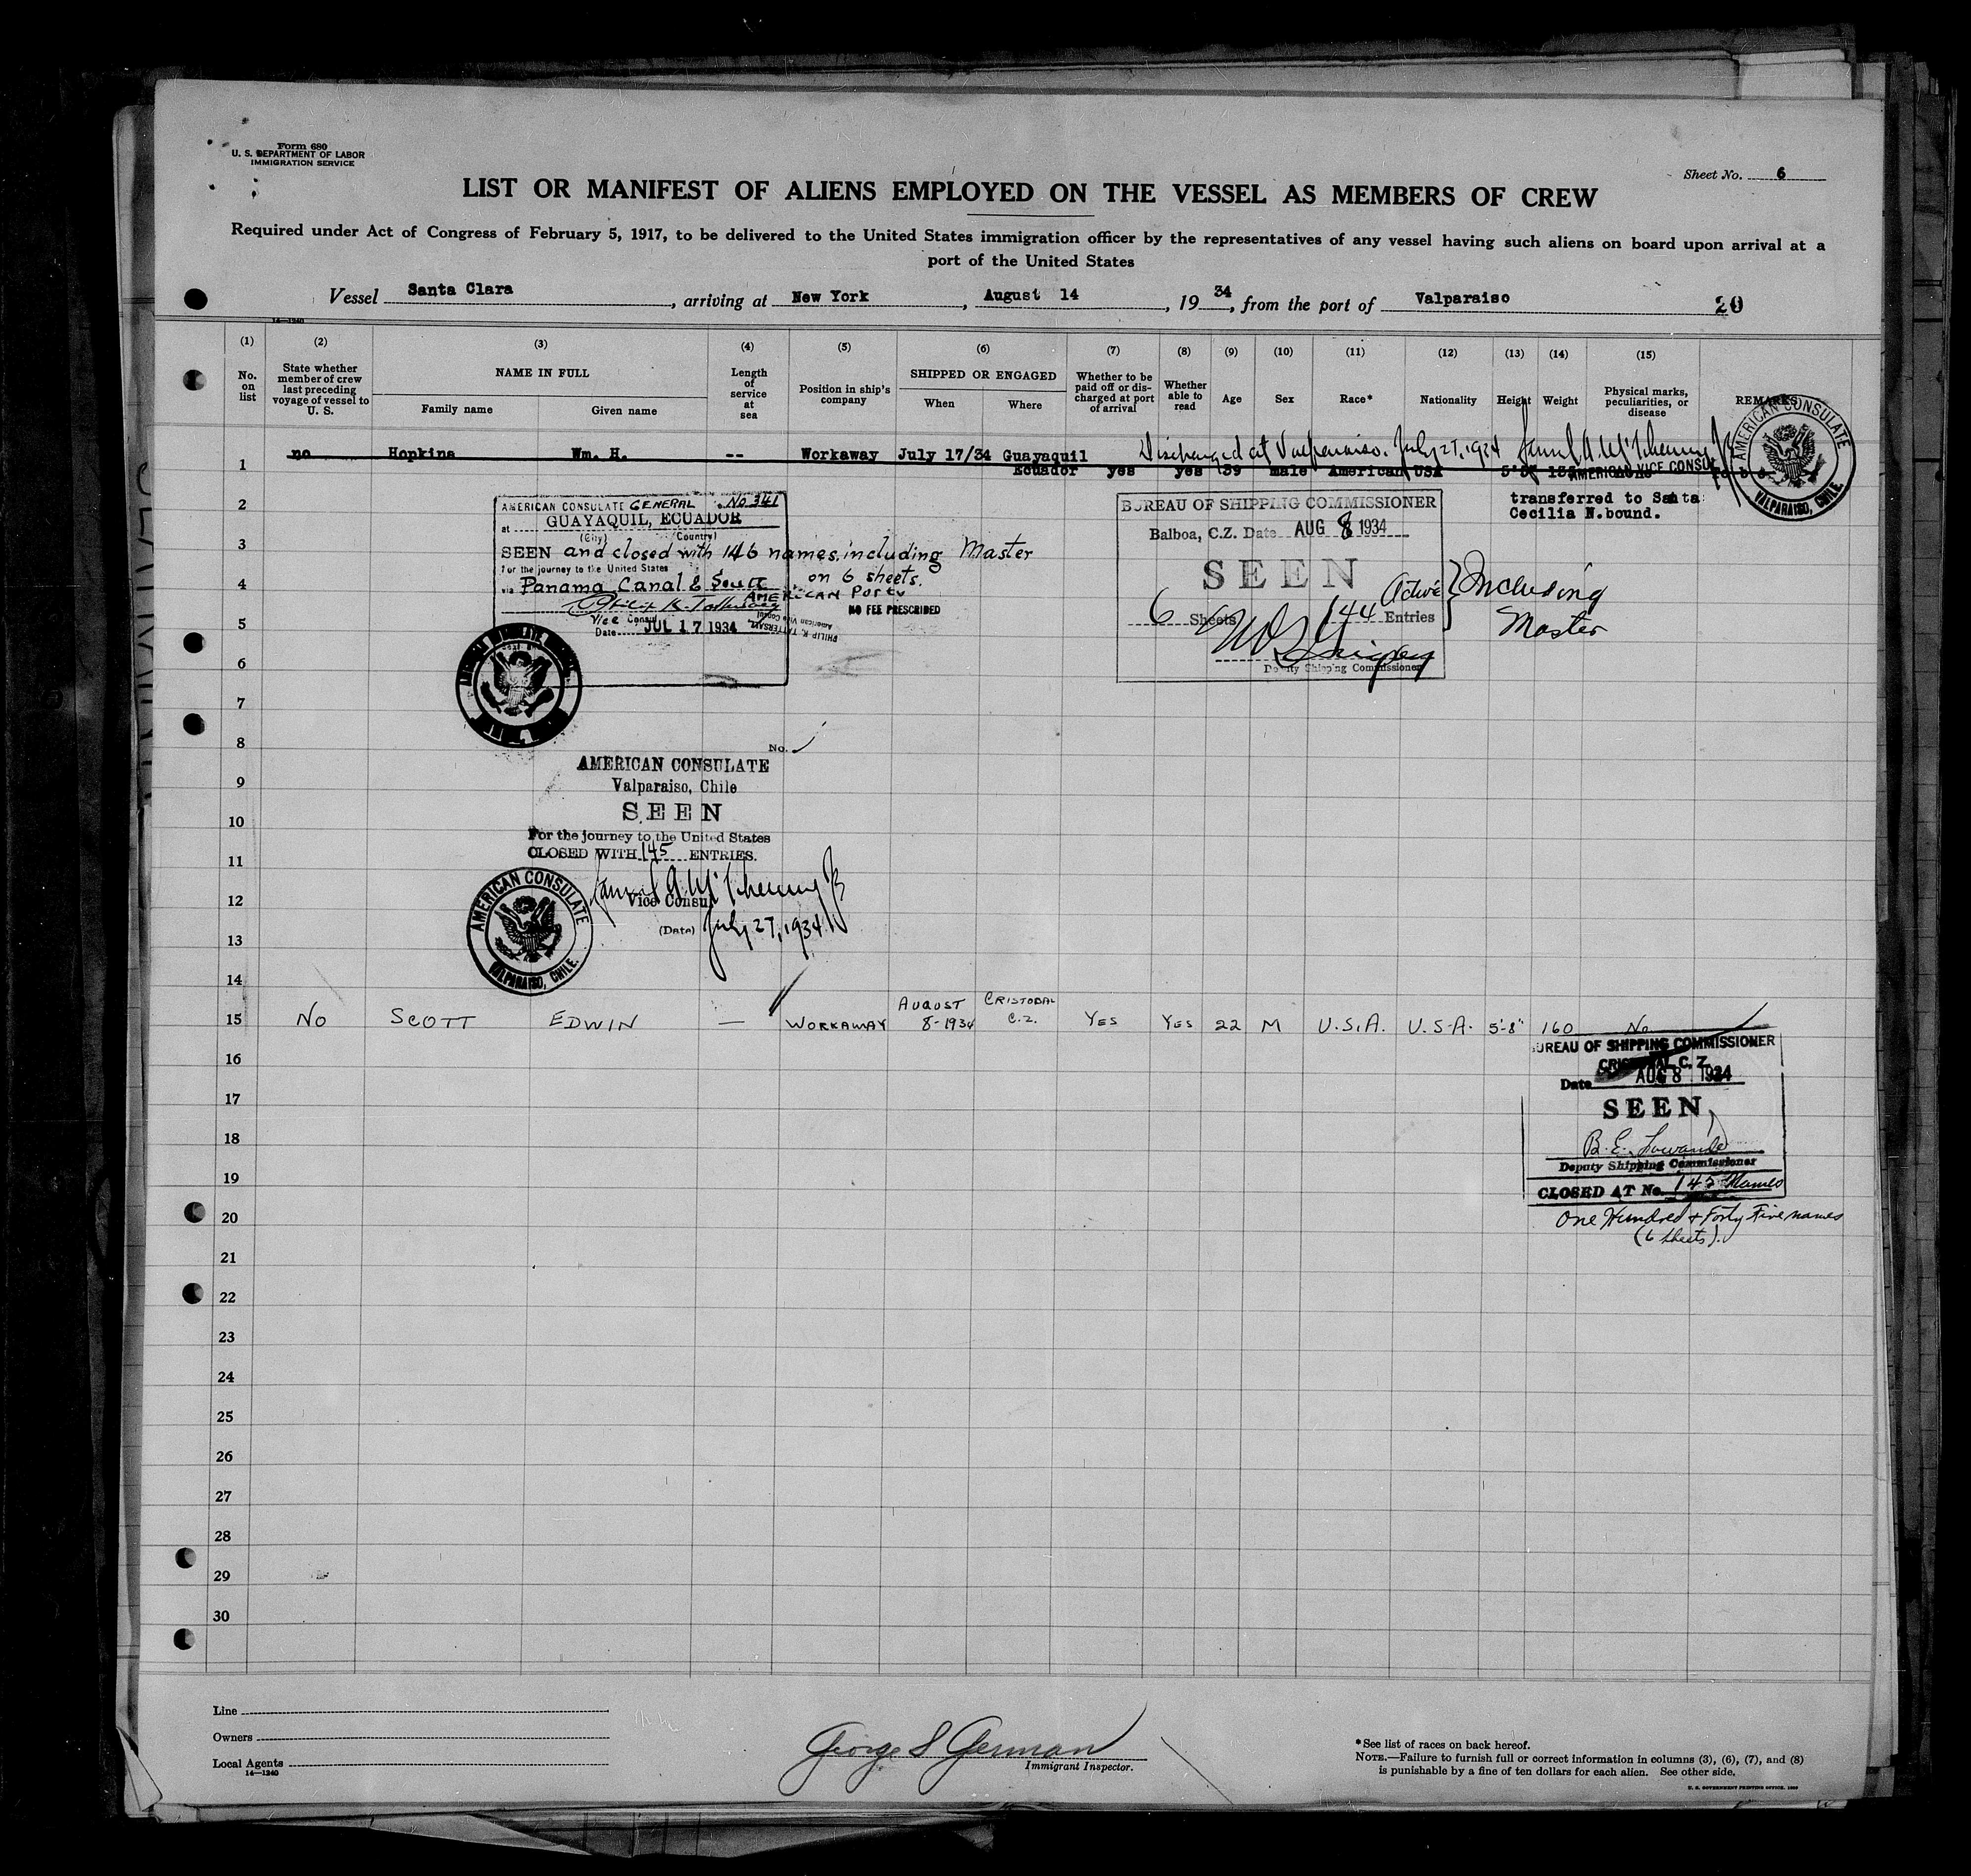 Form 680
U. S. DEPARTMENT OF LABOR
IMMIGRATION SERVICE
Sheet No. 6
LIST OR MANIFEST OF ALIENS EMPLOYED ON THE VESSEL AS MEMBERS OF CREW
Required under Act of Congress of February 5, 1917, to be delivered to the United States immigration officer by the representatives of any vessel having such aliens on board upon arrival at a
port of the United States
Vessel Santa Clara, arriving at New York, August 14, 1934, from the port of Valparaiso 20
14—1240
(1) (2) (3) (4) (5) (6) (7) (8) (9) (10) (11) (12) (13) (14) (15)
No. on list
State whether member of crew last preceding voyage of vessel to U. S.
NAME IN FULL
Family name
Given name
Length of service at sea
Position in ship's company
SHIPPED OR ENGAGED
When
Where
Whether to be paid off or discharged at port of arrival
Whether able to read
Age
Sex
Race*
Nationality
Height
Weight
Physical marks, peculiarities, or disease
REMARKS
Discharged at Valparaiso. July 27, 1934
no Hopkins Wm. H. -- Workaway July 17/34 Guayaquil
1 Ecuador yes yes 39 male American USA
AMERICAN VICE CONSUL
AMERICAN CONSULATE
VALPARAISO, CHILE.
2
transferred to Santa
Cecilia N.bound.
AMERICAN CONSULATE GENERAL No 341
at GUAYAQUIL, ECUADOR
(City) (Country)
SEEN and closed with 146 names, including Master
For the journey to the United States
via Panama Canal & South on 6 sheets.
AMERICAN Ports
NO FEE PRESCRIBED
Vice Consul
PHILIP K. TATTERSALL
American Vice Consul
Date JUL 17 1934
BUREAU OF SHIPPING COMMISSIONER
Balboa, C.Z. Date AUG 8 1934
SEEN
6 Sheets 144 Active Entries Including
Master
Deputy Shipping Commissioner
3
4
5
6
7
8
No.
AMERICAN CONSULATE
Valparaiso, Chile
SEEN
For the journey to the United States
CLOSED WITH 145 ENTRIES.
Vice Consul
(Date) July 27, 1934
AMERICAN CONSULATE
VALPARAISO, CHILE.
9
10
11
12
13
14
15 No SCOTT EDWIN — WORKAWAY AUGUST 8-1934 CRISTOBAL C.Z. YES YES 22 M U.S.A. U.S.A. 5'-8" 160 No
BUREAU OF SHIPPING COMMISSIONER
CRISTOBAL C. Z.
Date AUG 8 1934
SEEN
Deputy Shipping Commissioner
CLOSED AT No. 145 Names
One Hundred + Forty Five names
(6 sheets).
16
17
18
19
20
21
22
23
24
25
26
27
28
29
30
Line
Owners
Local Agents
14—1240
George S German
Immigrant Inspector.
*See list of races on back hereof.
NOTE.—Failure to furnish full or correct information in columns (3), (6), (7), and (8)
is punishable by a fine of ten dollars for each alien. See other side.